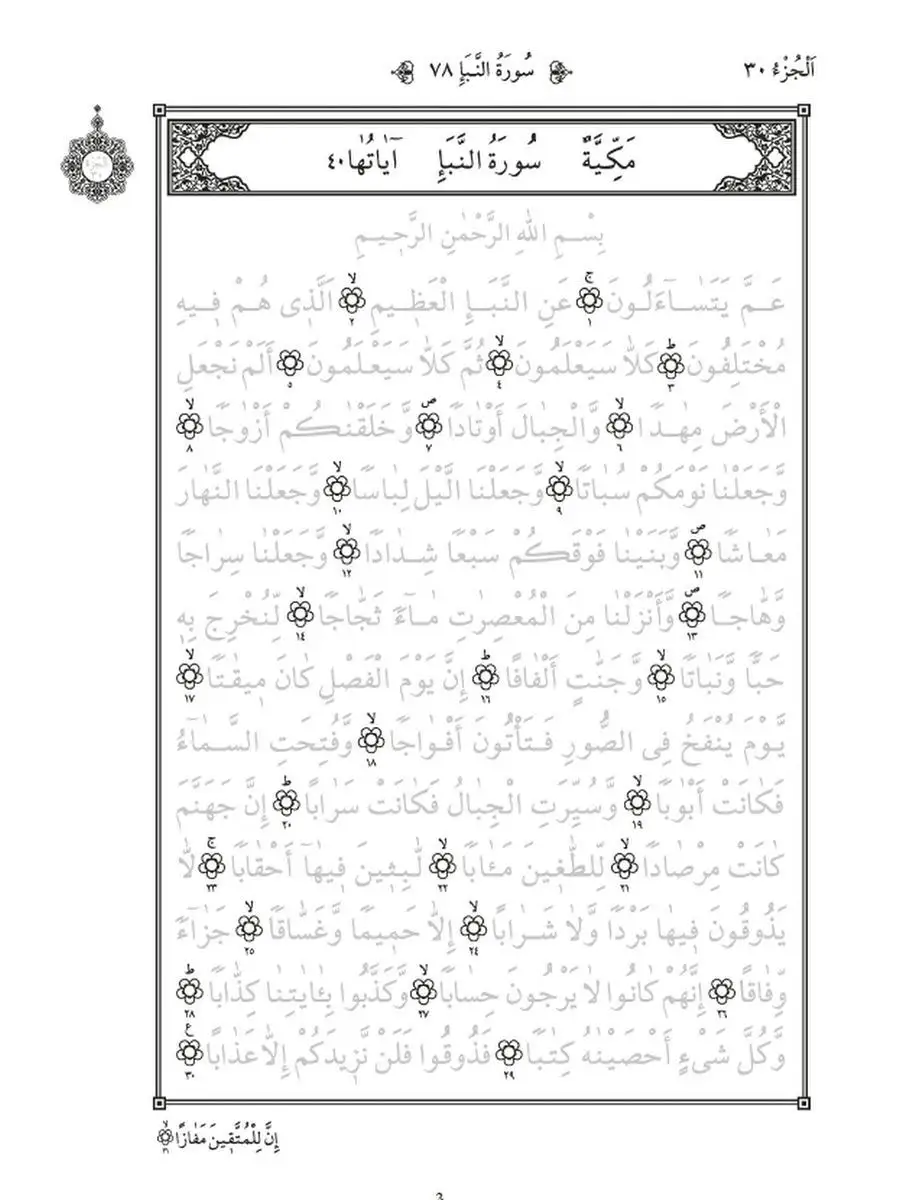 اَلْجُزْءُ ٣٠
سُورَةُ النَّبَإِ ٧٨
مَكِّيَّةٌ سُورَةُ النَّبَإِ آيَاتُهَا ٤٠
بِسْمِ اللهِ الرَّحْمٰنِ الرَّحِيمِ
عَمَّ يَتَسَٓاءَلُونَ ج ١ عَنِ النَّبَإِ الْعَظِيمِ لا ٢ اَلَّذِى هُمْ فِيهِ
مُخْتَلِفُونَ ط ٣ كَلَّا سَيَعْلَمُونَ لا ٤ ثُمَّ كَلَّا سَيَعْلَمُونَ ٥ أَلَمْ نَجْعَلِ
الْأَرْضَ مِهٰدًا لا ٦ وَّالْجِبَالَ أَوْتَادًا ص ٧ وَّخَلَقْنٰكُمْ أَزْوٰجًا لا ٨
وَّجَعَلْنَا نَوْمَكُمْ سُبَاتًا لا ٩ وَّجَعَلْنَا الَّيْلَ لِبَاسًا لا ١٠ وَّجَعَلْنَا النَّهَارَ
مَعَاشًا ص ١١ وَّبَنَيْنَا فَوْقَكُمْ سَبْعًا شِدَادًا لا ١٢ وَّجَعَلْنَا سِرَاجًا
وَّهَّاجًا ص ١٣ وَّأَنْزَلْنَا مِنَ الْمُعْصِرٰتِ مَٓاءً ثَجَّاجًا لا ١٤ لِّنُخْرِجَ بِهِ
حَبًّا وَّنَبَاتًا لا ١٥ وَّجَنّٰتٍ أَلْفَافًا ط ١٦ إِنَّ يَوْمَ الْفَصْلِ كَانَ مِيقٰتًا لا ١٧
يَّوْمَ يُنْفَخُ فِى الصُّورِ فَتَأْتُونَ أَفْوَاجًا لا ١٨ وَّفُتِحَتِ السَّمَٓاءُ
فَكَانَتْ أَبْوٰبًا لا ١٩ وَّسُيِّرَتِ الْجِبَالُ فَكَانَتْ سَرَابًا ط ٢٠ إِنَّ جَهَنَّمَ
كَانَتْ مِرْصَادًا لا ٢١ لِّلطّٰغِينَ مَـَٔابًا لا ٢٢ لّٰبِثِينَ فِيهَٓا أَحْقَابًا ج ٢٣ لَّا
يَذُوقُونَ فِيهَا بَرْدًا وَّلَا شَرَابًا لا ٢٤ إِلَّا حَمِيمًا وَّغَسَّاقًا لا ٢٥ جَزَٓاءً
وِّفَاقًا ٢٦ إِنَّهُمْ كَانُوا لَا يَرْجُونَ حِسَابًا لا ٢٧ وَّكَذَّبُوا بِـَٔايٰتِنَا كِذَّابًا ط ٢٨
وَّكُلَّ شَىْءٍ أَحْصَيْنٰهُ كِتٰبًا ٢٩ فَذُوقُوا فَلَنْ نَّزِيدَكُمْ إِلَّا عَذَابًا ع ٣٠
إِنَّ لِلْمُتَّقِينَ مَفَازًا لا ٣١
3